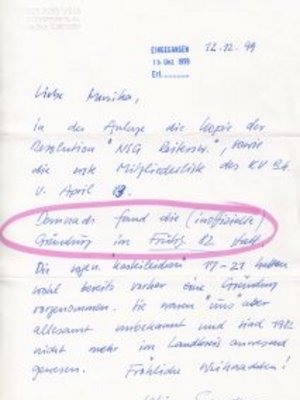 EINGEGANGEN
15. Dez. 1999
Erl.
12.12.99
Liebe Monika,
in der Anlage die Kopie der
Resolution "NSG Reiterstr.", sowie
die erste Mitgliederliste des KV
v. April 83.
Demnach fand die (inoffizielle)
Gründung im Frühj. 82 statt.
Die sogen. "Karteileichen" 17-21 hatten
wohl bereits vorher eine Gründung
vorgenommen. Sie waren "uns" aber
allesamt unbekannt und sind 1982
nicht mehr im Landkreis anwesend
gewesen. Fröhliche Weihnachten!